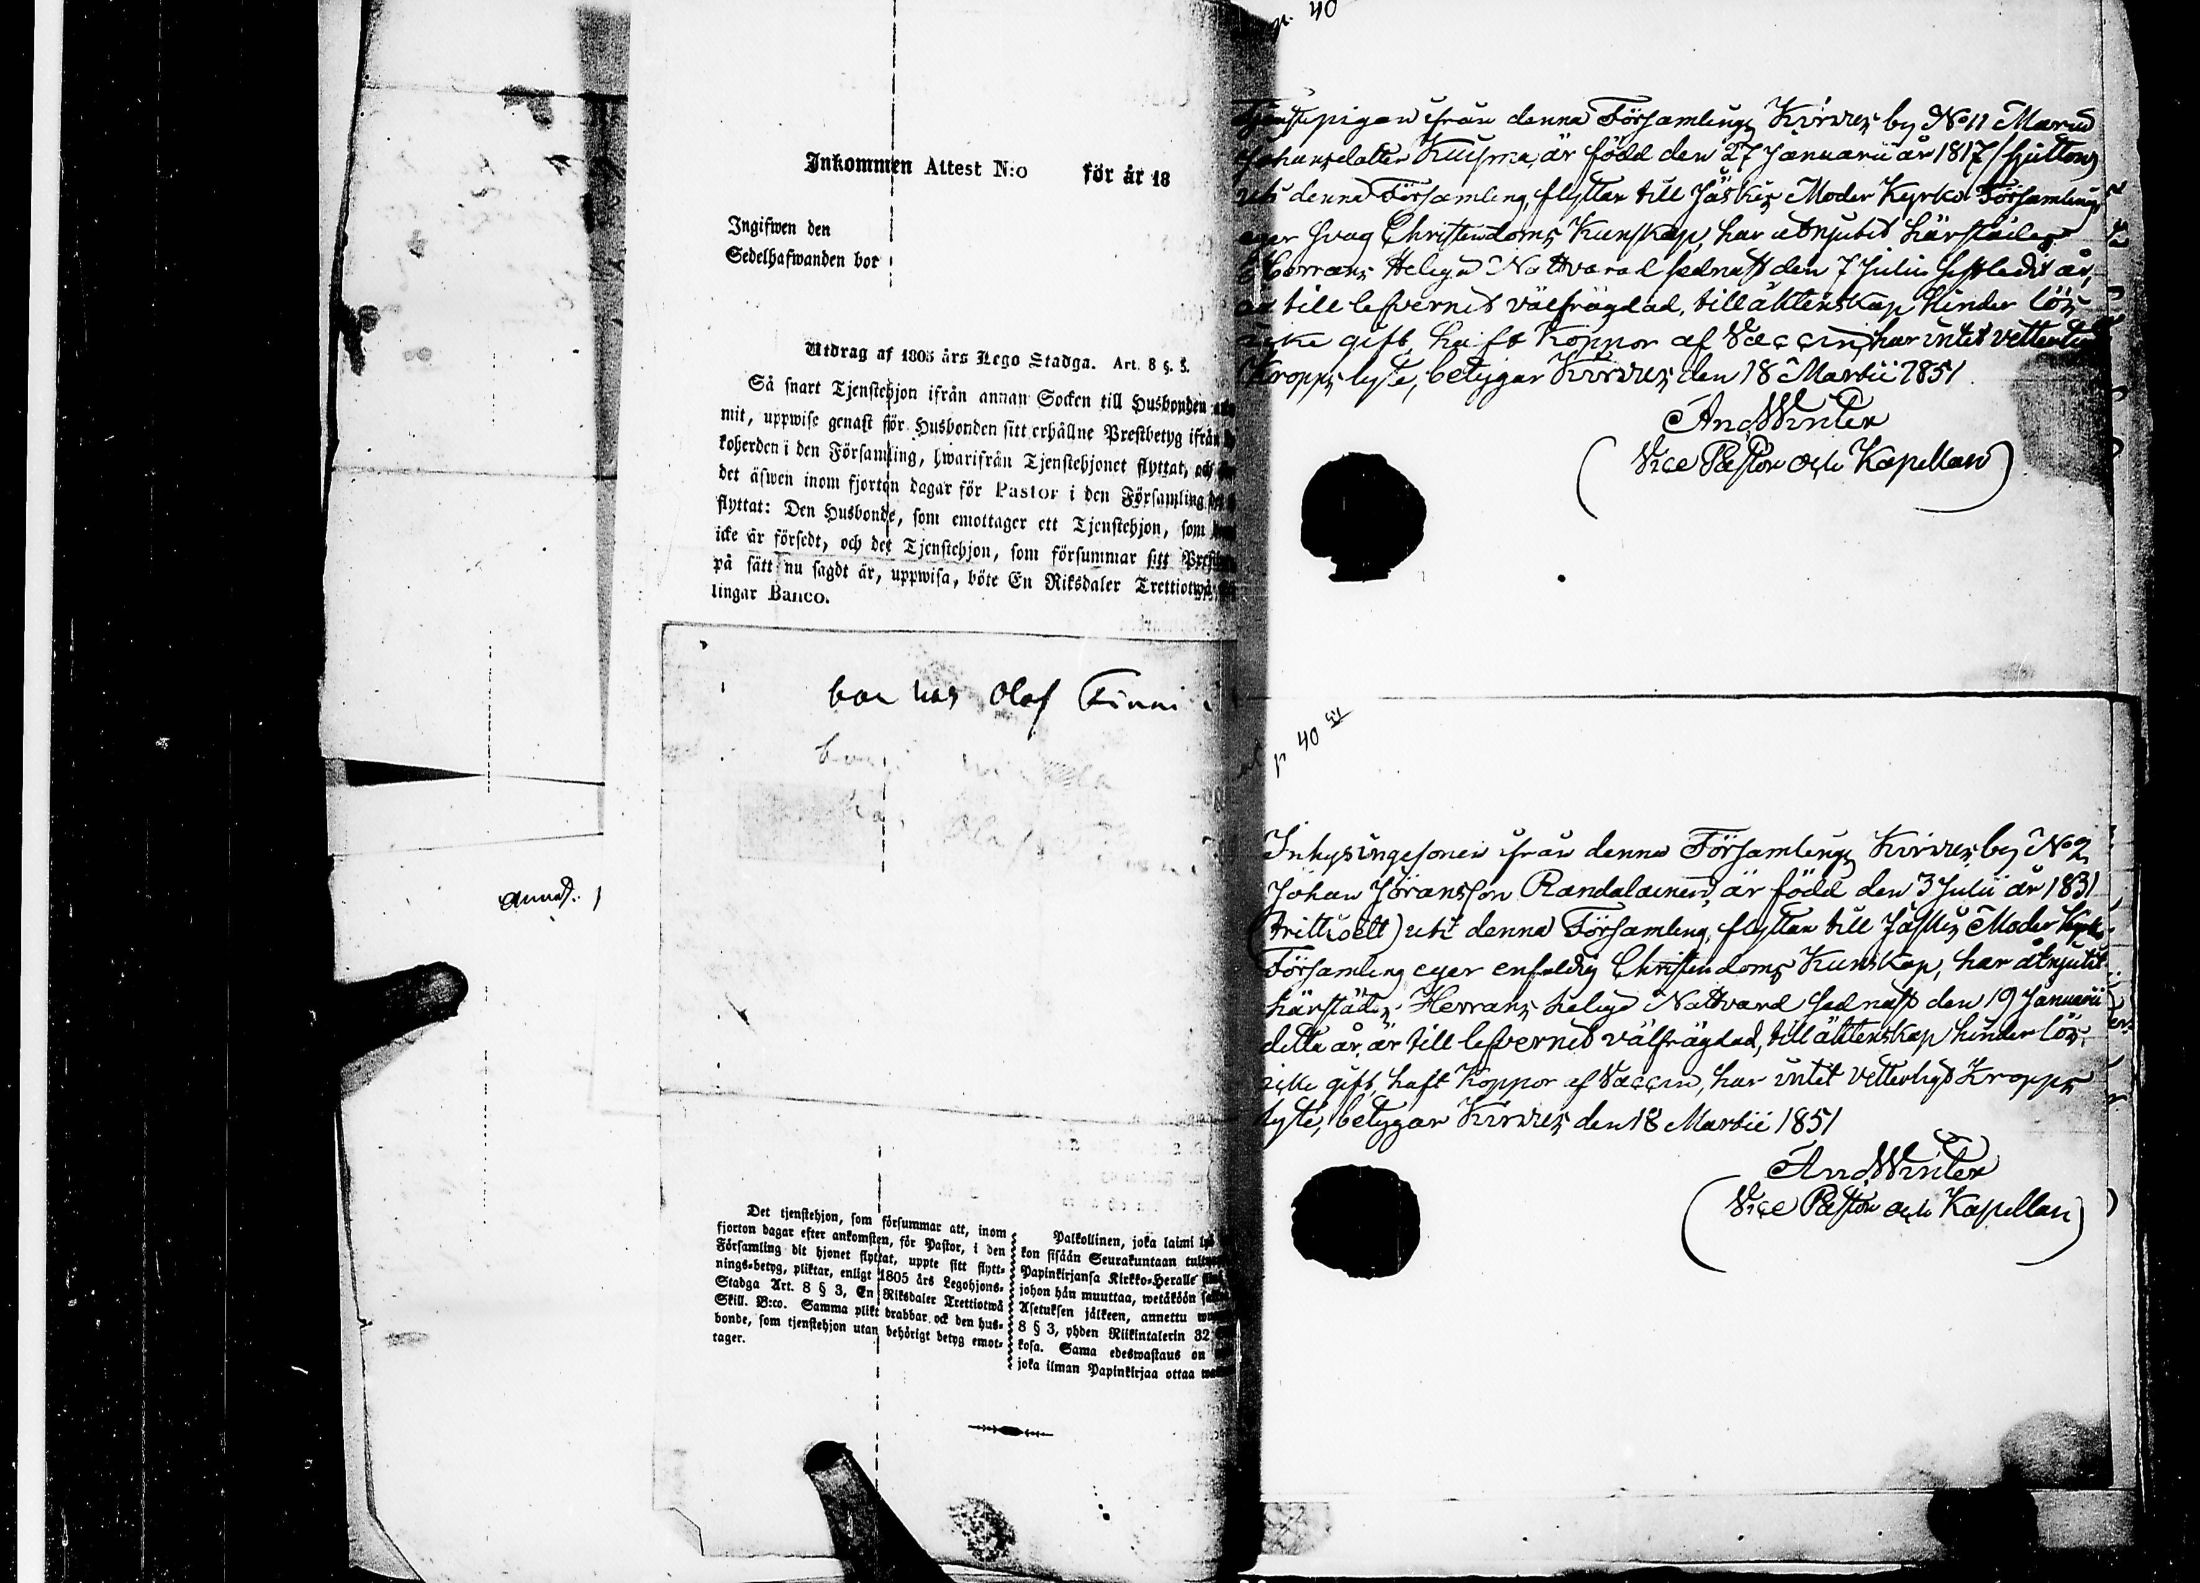 Inkommen Attest N:o för år 18
Ingifwen den
Sedelhafwanden bor
Utdrag af 1805 års Lego Stadga. Art. 8 §. 3.
Så snart Tjenstehjon ifrån annan Socken till Husbonden
mit, uppwise genast för Husbonden sitt erhållne Prestbetyg ifrån
koherden i den Församling, hwarifrån Tjenstehjonet flyttat, och
det äfwen inom fjorton dagar för Pastor i den Församling
flyttat: Den Husbonde, som emottager ett Tjenstehjon, som
icke är försedt, och det Tjenstehjon, som försummar sitt
på sätt nu sagdt är, uppwisa, böte En Riksdaler Trettiotwå
lingar Banco.
bor hos Olof Finni
Det tjenstehjon, som försummar att, inom
fjorton dagar efter ankomsten, för Pastor, i den
Församling dit hjonet flyttat, uppte sitt flytt-
nings-betyg, pliktar, enligt 1805 års Legohjons-
Stadga Art. 8 § 3, En Riksdaler Trettiotwå
Skill. B:co. Samma plikt drabbar ock den hus-
bonde, som tjenstehjon utan behörigt betyg emot-
tager.
Palkollinen, joka laimi
kon sisään Seurakuntaan
Papinkirjansa Kirkko-Heralle
johon hän muuttaa, wetäköön
Asetuksen jälkeen, annettu
8 § 3, yhden Riikintalerin 32
kosa. Sama edeswastaus on
joka ilman Papinkirjaa ottaa
p. 40
Tjenstepigan ifrån denna Församlings Kirvus by No 11 Maria
Johansdotter Kuisma, är född den 27 Januarii år 1817 (sjutton)
uti denna Församling, flyttar till Jäskis Moder Kyrko Församling,
eger svag Christendoms Kunskap, har åtnjutit härstädes
Herrans Heliga Nattvard sednast den 7 Julii sistledit år,
är till lefvernet välfrägdad, till äktenskap hinder lös
icke gift, haft Koppor af Vaccin, har intet vetterligt
Kropps lyte, betygar Kirvus den 18 Martii 1851
And Winter
(Vice Pastor och Kapellan)
p 40
Inhysingesonen ifrån denna Församlings Kirvus by No 2
Johan Jöransson Randalainen, är född den 3 Julii år 1831
(trittioett) uti denna Församling, flyttar till Jäskis Moder Kyrko
Församling eger enfaldig Christendoms Kunskap, har åtnjutit
härstädes Herrans heliga Nattvard sednast den 19 Januarii
detta år, är till lefvernet välfrägdad, till äktenskap hinder lös,
icke gift, haft Koppor af Vaccin, har intet vetterligt Kropps
lyte, betygar Kirvus den 18 Martii 1851
And Winter
(Vice Pastor och Kapellan)